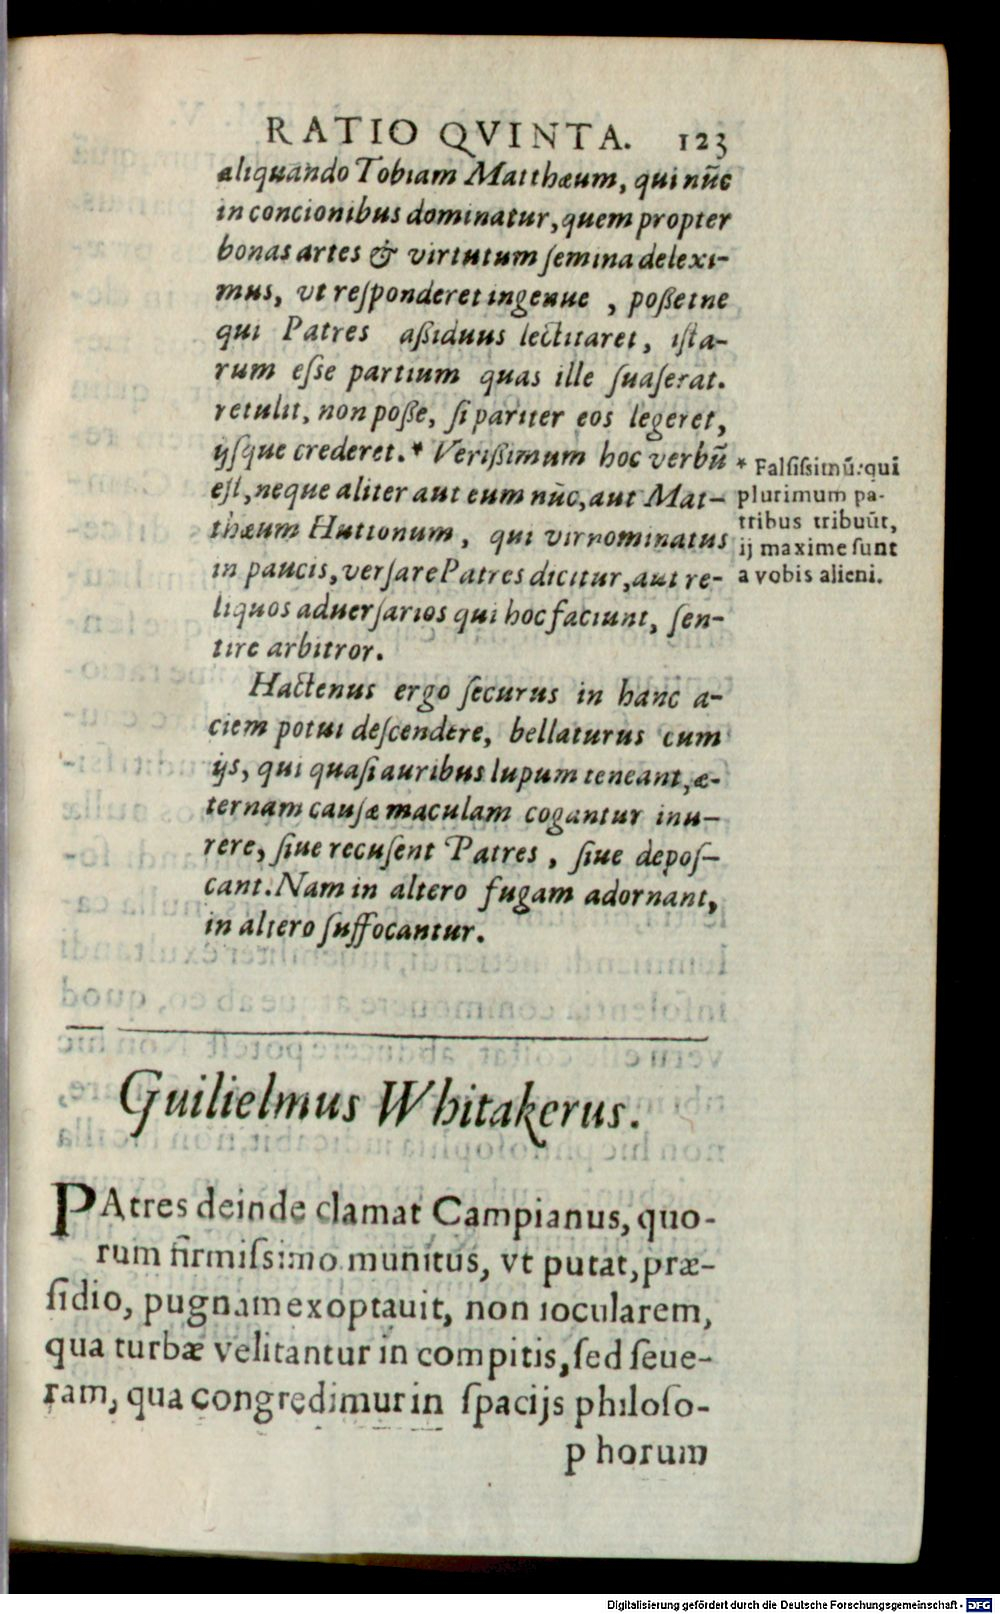 RATIO QVINTA. 123
aliquando Tobiam Matthæum, qui nūc
in concionibus dominatur, quem propter
bonas artes & virtutum ſemina delexi-
mus, vt reſponderet ingenue, poßetne
qui Patres aßiduus lectitaret, iſta-
rum eſſe partium quas ille ſuaſerat.
retulit, non poße, ſi pariter eos legeret,
ijſque crederet.* Verißimum hoc verbū
eſt, neque aliter aut eum nūc, aut Mat-
thæum Huttonum, qui vir nominatus
in paucis, verſare Patres dicitur, aut re-
liquos aduerſarios qui hoc faciunt, ſen-
tire arbitror.
* Falſiſsimū: qui
plurimum pa-
tribus tribuūt,
ij maxime ſunt
a vobis alieni.
Hactenus ergo ſecurus in hanc a-
ciem potui deſcendere, bellaturus cum
ijs, qui quaſi auribus lupum teneant, æ-
ternam cauſæ maculam cogantur inu-
rere, ſiue recuſent Patres, ſiue depoſ-
cant. Nam in altero fugam adornant,
in altero ſuffocantur.
Guilielmus Whitakerus.
PAtres deinde clamat Campianus, quo-
rum firmiſsimo munitus, vt putat, præ-
ſidio, pugnam exoptauit, non iocularem,
qua turbæ velitantur in compitis, ſed ſeue-
ram, qua congredimur in ſpacijs philoſo-
phorum
Digitalisierung gefördert durch die Deutsche Forschungsgemeinschaft - DFG